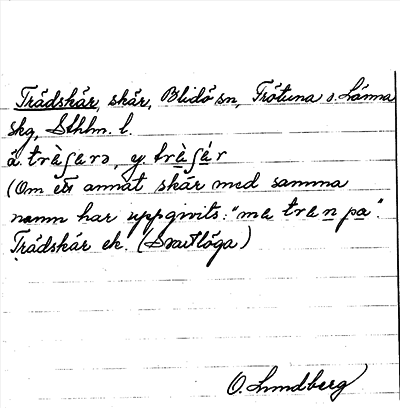 Trädskär, skär, Blidö sn, Frötuna o. Länna
skg, Sthlm. l.
ä. trὲʃɛrə, y. trὲʃέr
(Om ett annat skär med samma
namn har uppgivits: "me trɛn pa".
Trädskär ek. (Svartlöga)
O. Lundberg